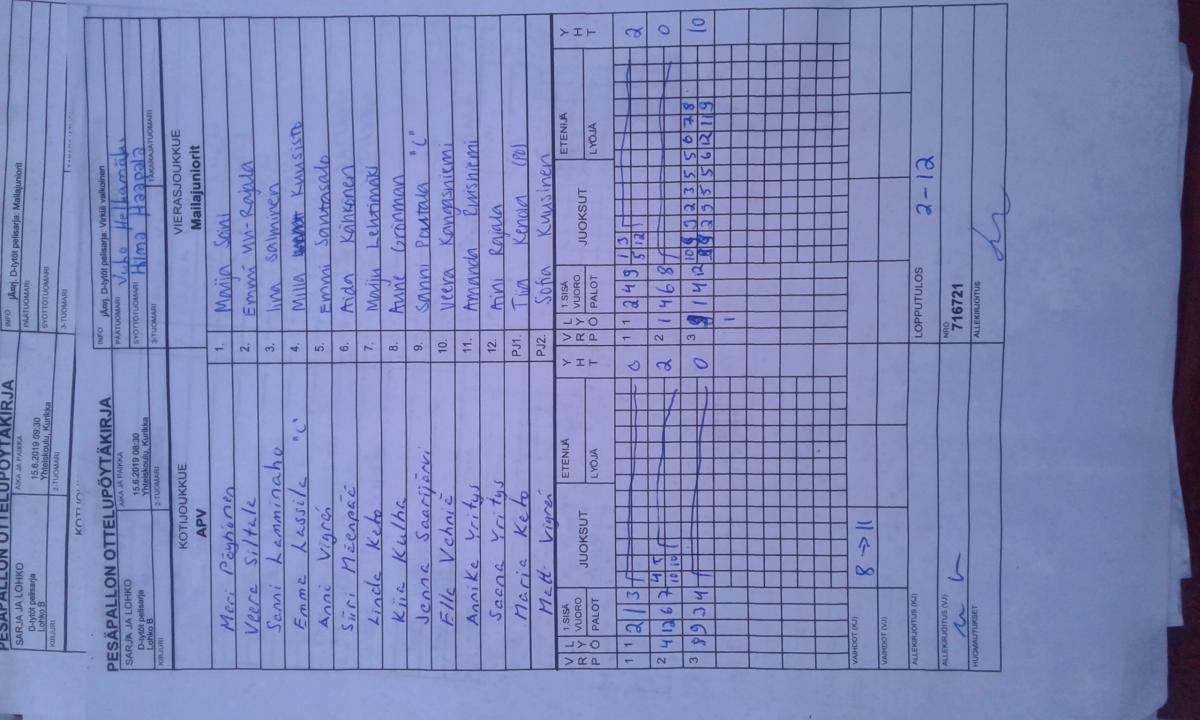 PESÄPALLON OTTELUPÖYTÄKIRJA
SARJA JA LOHKO
D-tytöt pelisarja
Lohko B
KIRJURI
AIKA JA PAIKKA
15.6.2019 09:30
Yhteiskoulu, Kurikka
2-TUOMARI
INFO
jAmj. D-tytöt pelisarja: Mailajuniorit
PÄÄTUOMARI
SYÖTTÖTUOMARI
3-TUOMARI
PESÄPALLON OTTELUPÖYTÄKIRJA
SARJA JA LOHKO
D-tytöt pelisarja
Lohko B
KIRJURI
AIKA JA PAIKKA
15.6.2019 08:30
Yhteiskoulu, Kurikka
2-TUOMARI
INFO jAmj. D-tytöt pelisarja: Virkiä valkoinen
PÄÄTUOMARI Juho
SYÖTTÖTUOMARI Hilma Haapala
3-TUOMARI
TAKARAJATUOMARI
KOTIJOUKKUE
APV
VIERASJOUKKUE
Mailajuniorit
Meri Pöyhönen 1. Marija Sani
Veera Siltala 2. Emmi Uu-Rajala
Sanni Lamminaho 3. Iina Salminen
Emma Lassila "C" 4. Milla Kuusisto
Anni Vigrén 5. Emmi Santasalo
Siiri Mäenpää 6. Aida Kähkönen
Linda Keto 7. Marju Lehtimäki
Kiia Kulha 8. Anne Grönman
Jenna Saarijärvi 9. Sanni Pautala "C"
Ella Vehniä 10. Veera Kangasniemi
Annika Yritys 11. Amanda Ruisniemi
Saana Yritys 12. Aini Rajala
Maria Keto PJ1. Tiia Kenola (PO)
Matti Vigrén PJ2. Sofia Kuusinen
V R P L Y Ö 1.SISÄ VUORO PALOT JUOKSUT ETENIJÄ LYÖJÄ Y H T
V R P L Y Ö 1.SISÄ VUORO PALOT JUOKSUT ETENIJÄ LYÖJÄ Y H T
1 1 2 1 3 0
1 1 2 4 9 1 3 2
5 12
2 4 12 6 7 4 5 2
10 10
2 1 4 6 8 0
3 8 9 3 4 0
3 1 4 12 10
1
VAIHDOT (KJ) 8 → 11
VAIHDOT (VJ)
ALLEKIRJOITUS (KJ)
LOPPUTULOS 2-12
ALLEKIRJOITUS (VJ)
NRO
716721
HUOMAUTUKSET
ALLEKIRJOITUS